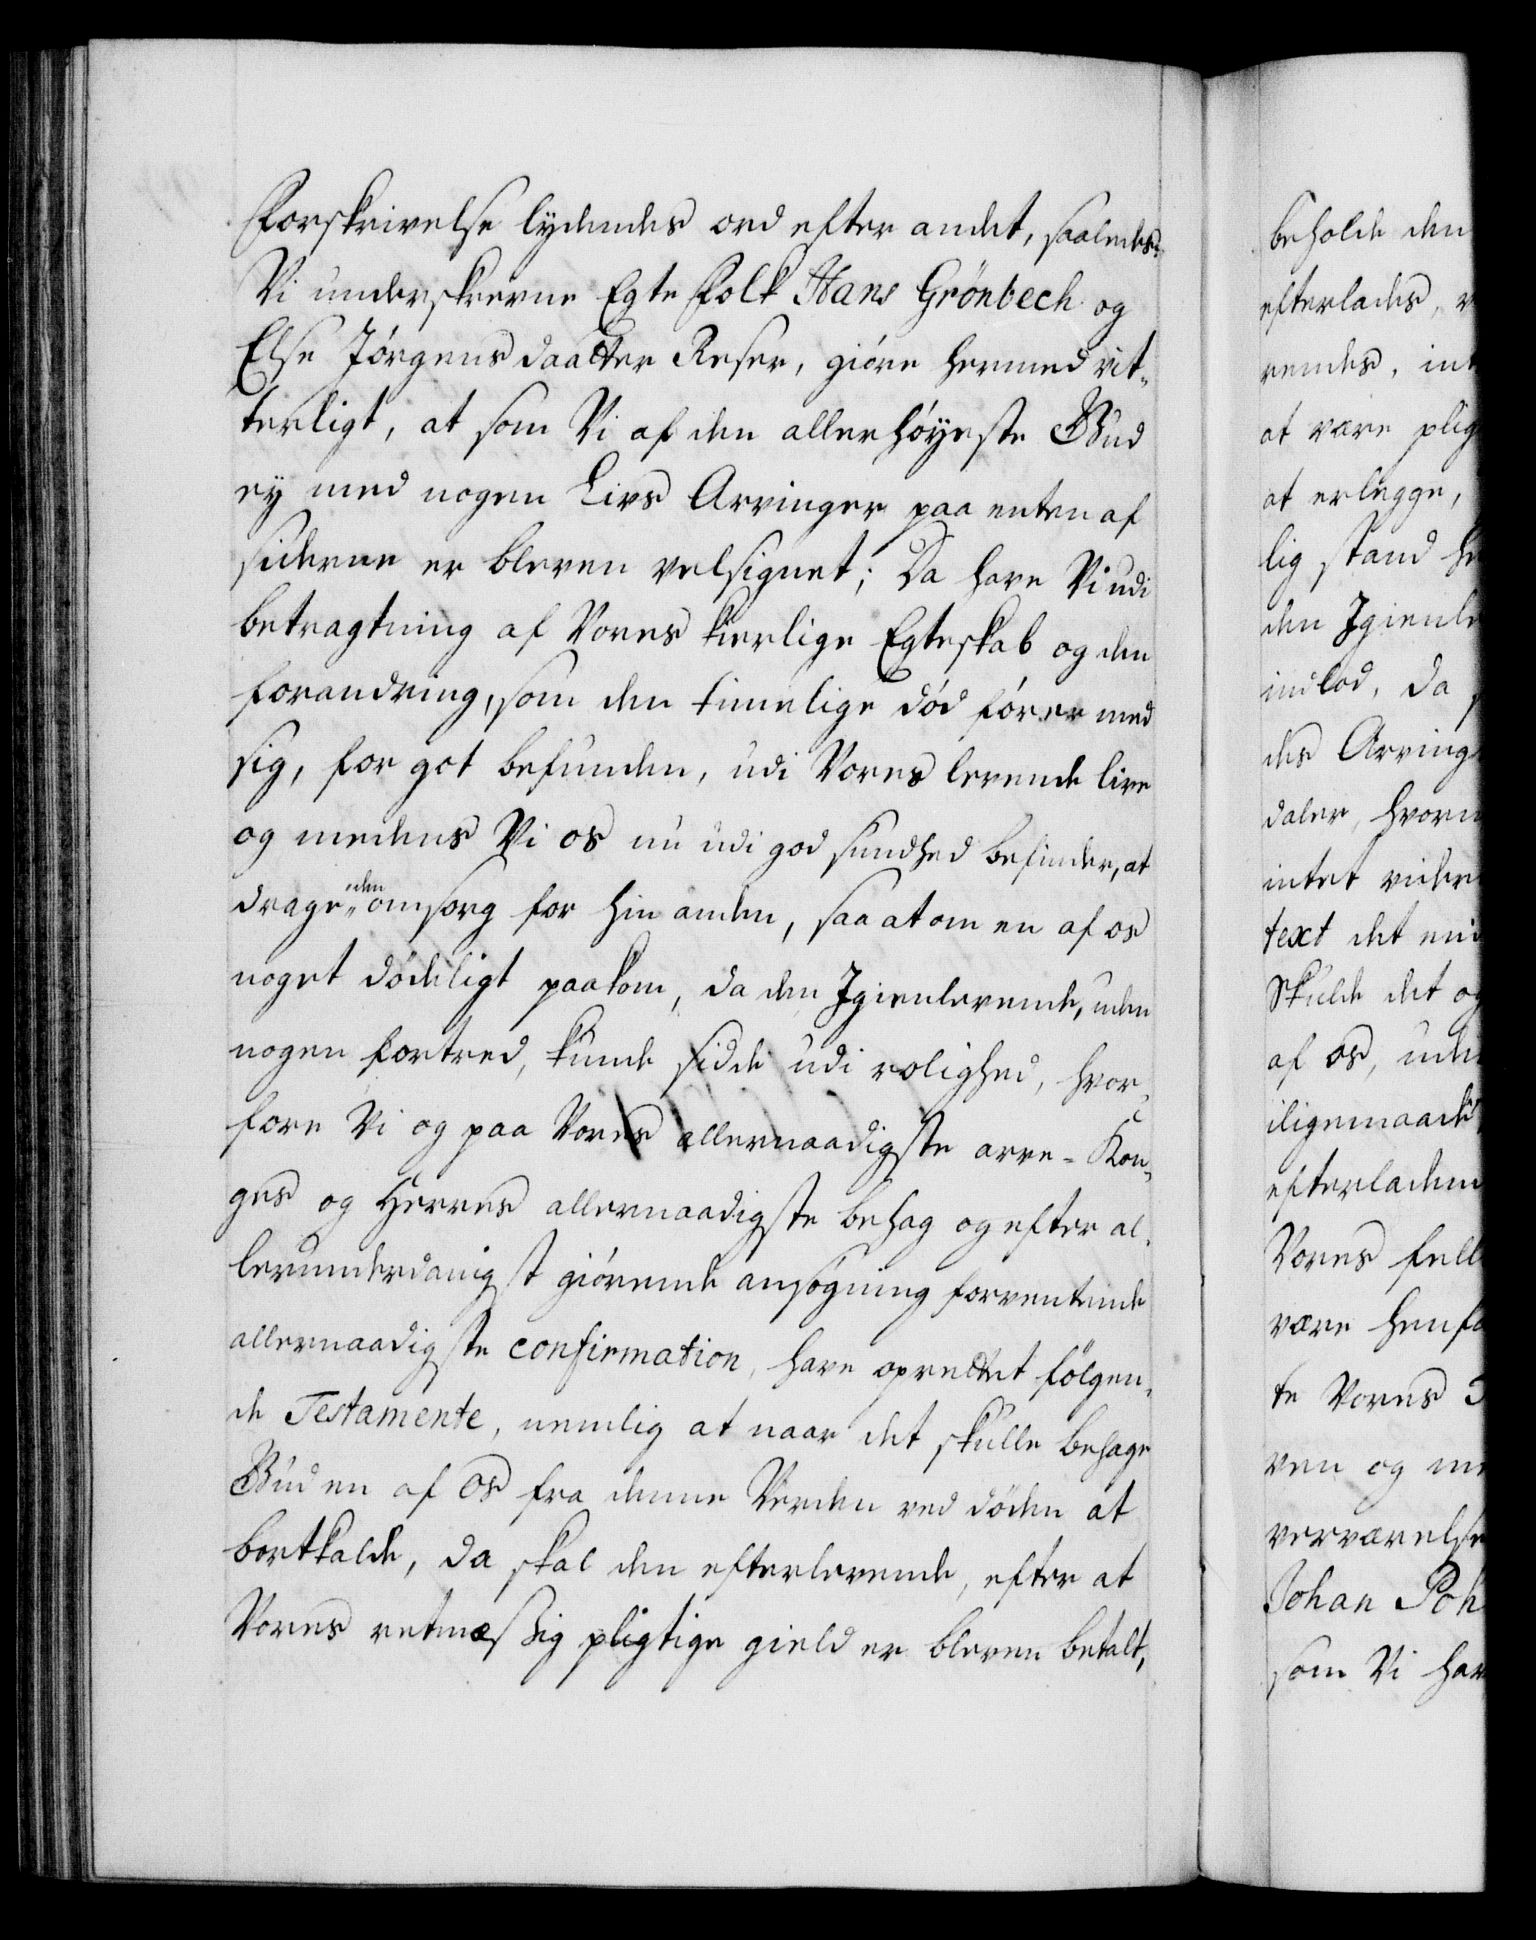 Forskrivelse lydendes ord efter andet, saaledes:
Vi underskrevne Egte Folk Hans Grönbech og
Else Jörgens daatter Reser, giöre hermed vit-
terligt, at som Vi af den allerhöyeste Gud
ey med nogen Livs Arvinger paa enten af
siderne er bleven velsignet; Da have Vi udi
betragtning af Vores kierlige Egteskab og den
forandring, som den timelige död förer med
sig, for got befunden, udi Vores levende live
og medens Vi os nu udi god sundhed befinder, at
drage den omsorg for hin anden, saa at om en af os
noget dödeligt paakom, da den Igienlevende, uden
nogen fortred, kunde sidde udi rolighed, hvor-
fore Vi og paa Vores allernaadigste arve-Kon-
ges og Herres allernaadigste behag og efter al-
lerunderdanigst giörende ansögning forventende
allernaadigste confirmation, have oprettet fölgen-
de Testamente, nemlig at naar det skulle behage
Gud en af os fra denne Verden ved döden at
bortkalde, da skal den efterlevende, efter at
Vores retmæssig pligtige gield er bleven betalt,
beholde den
efterlades, v
rendes, int
at være plig
at erlegge,
lig stand he
den Igienle
indlod, da
des Arving
daler, hvorn
intet videre
text det mi
Skulde det og
af os, uden
iligemaade
efterladen
Vores fell
være henfa
te Vores
ven og me
verværelse
Johan Poh
som Vi hav